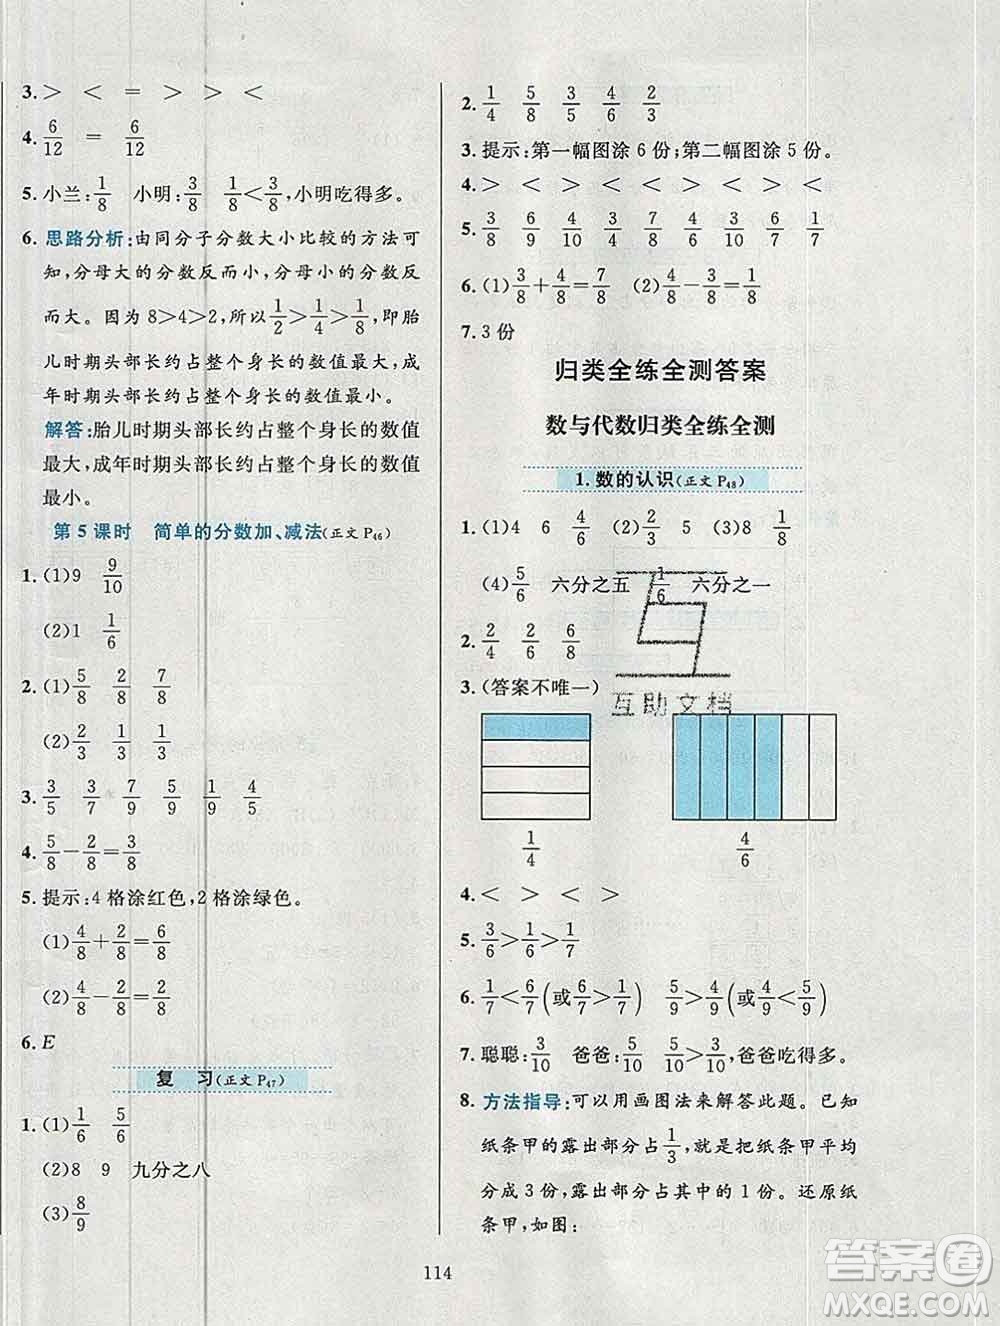 3. > < = > > <
4. 6/12 = 6/12
5. 小兰:1/8 小明:3/8 1/8<3/8,小明吃得多。
6. 思路分析:由同分子分数大小比较的方法可
知,分母大的分数反而小,分母小的分数反
而大。因为8>4>2,所以1/2>1/4>1/8,即胎
儿时期头部长约占整个身长的数值最大,成
年时期头部长约占整个身长的数值最小。
解答:胎儿时期头部长约占整个身长的数值
最大,成年时期头部长约占整个身长的数值
最小。
第5课时 简单的分数加、减法(正文P46)
1. (1)9 9/10
(2)1 1/6
2. (1)5/8 2/8 7/8
(2)2/3 1/3 1/3
3. 3/5 7/8 7/9 5/9 1/9 4/5
4. 5/8-2/8=3/8
5. 提示:4格涂红色,2格涂绿色。
(1)4/8+2/8=6/8
(2)4/8-2/8=2/8
6. E
复 习(正文P47)
1. (1)1/6 5/6
(2)8 9 九分之八
(3)8/9
2. 1/4 5/8 3/5 4/6 2/3
3. 提示:第一幅图涂6份;第二幅图涂5份。
4. > < > < < > < > <
5. 3/8 7/9 6/6 4/6 2/7 3/4 5/9 7/8
6. (1)3/8+4/8=7/8 (2)4/8-3/8=1/8
7. 3份
归类全练全测答案
数与代数归类全练全测
1. 数的认识(正文P48)
1. (1)4 6 4/6 (2)2/5 2 5 (3)8 1 1/8
(4)5/6 六分之五 1/6 六分之一
2. 2/4 2/6 6/8
3. (答案不唯一)
互助文档
1/4 4/6
4. < > < >
5. 3/6>1/6>1/7
6. 1/7<6/7(或6/7>1/7) 5/9>4/9(或4/9<5/9)
7. 聪聪:3/10 爸爸:5/10 5/10>3/10,爸爸吃得多。
8. 方法指导:可以用画图法来解答此题。已知
纸条甲的露出部分占1/3,就是把纸条甲平均
分成3份,露出部分占其中的1份。还原纸
条甲,如图:
114
答案圈
MXQE.COM